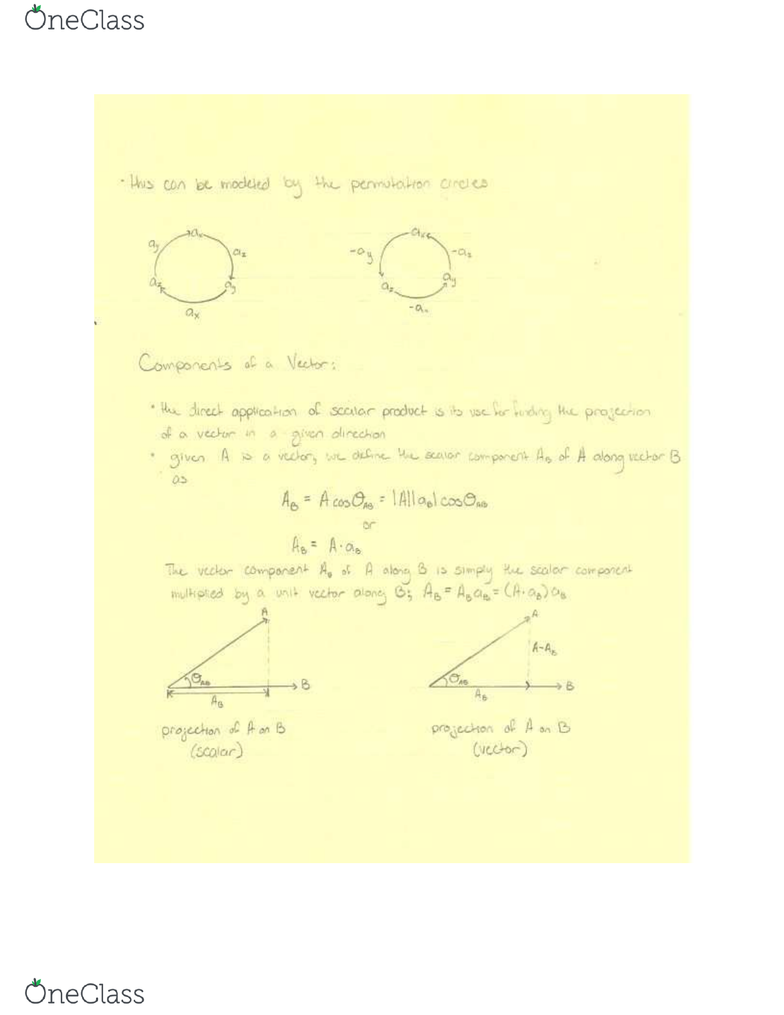 OneClass
• this can be modeled by the permutation circles
aₓ aₓ
a_y a_z -a_y -a_z
a_z a_y a_z a_y
aₓ -aₓ
Components of a Vector:
• the direct application of scalar product is its use for finding the projection
of a vector in a given direction
• given A is a vector, we define the scalar component A_B of A along vector B
as
A_B = A cosθ_AB = |A||a_B| cosθ_AB
or
A_B = A·a_B
The vector component A_B of A along B is simply the scalar component
multiplied by a unit vector along B; A_B = A_B a_B = (A·a_B)a_B
A A
A-A_B
θ_AB B θ_AB B
A_B A_B
projection of A on B projection of A on B
(scalar) (vector)
OneClass